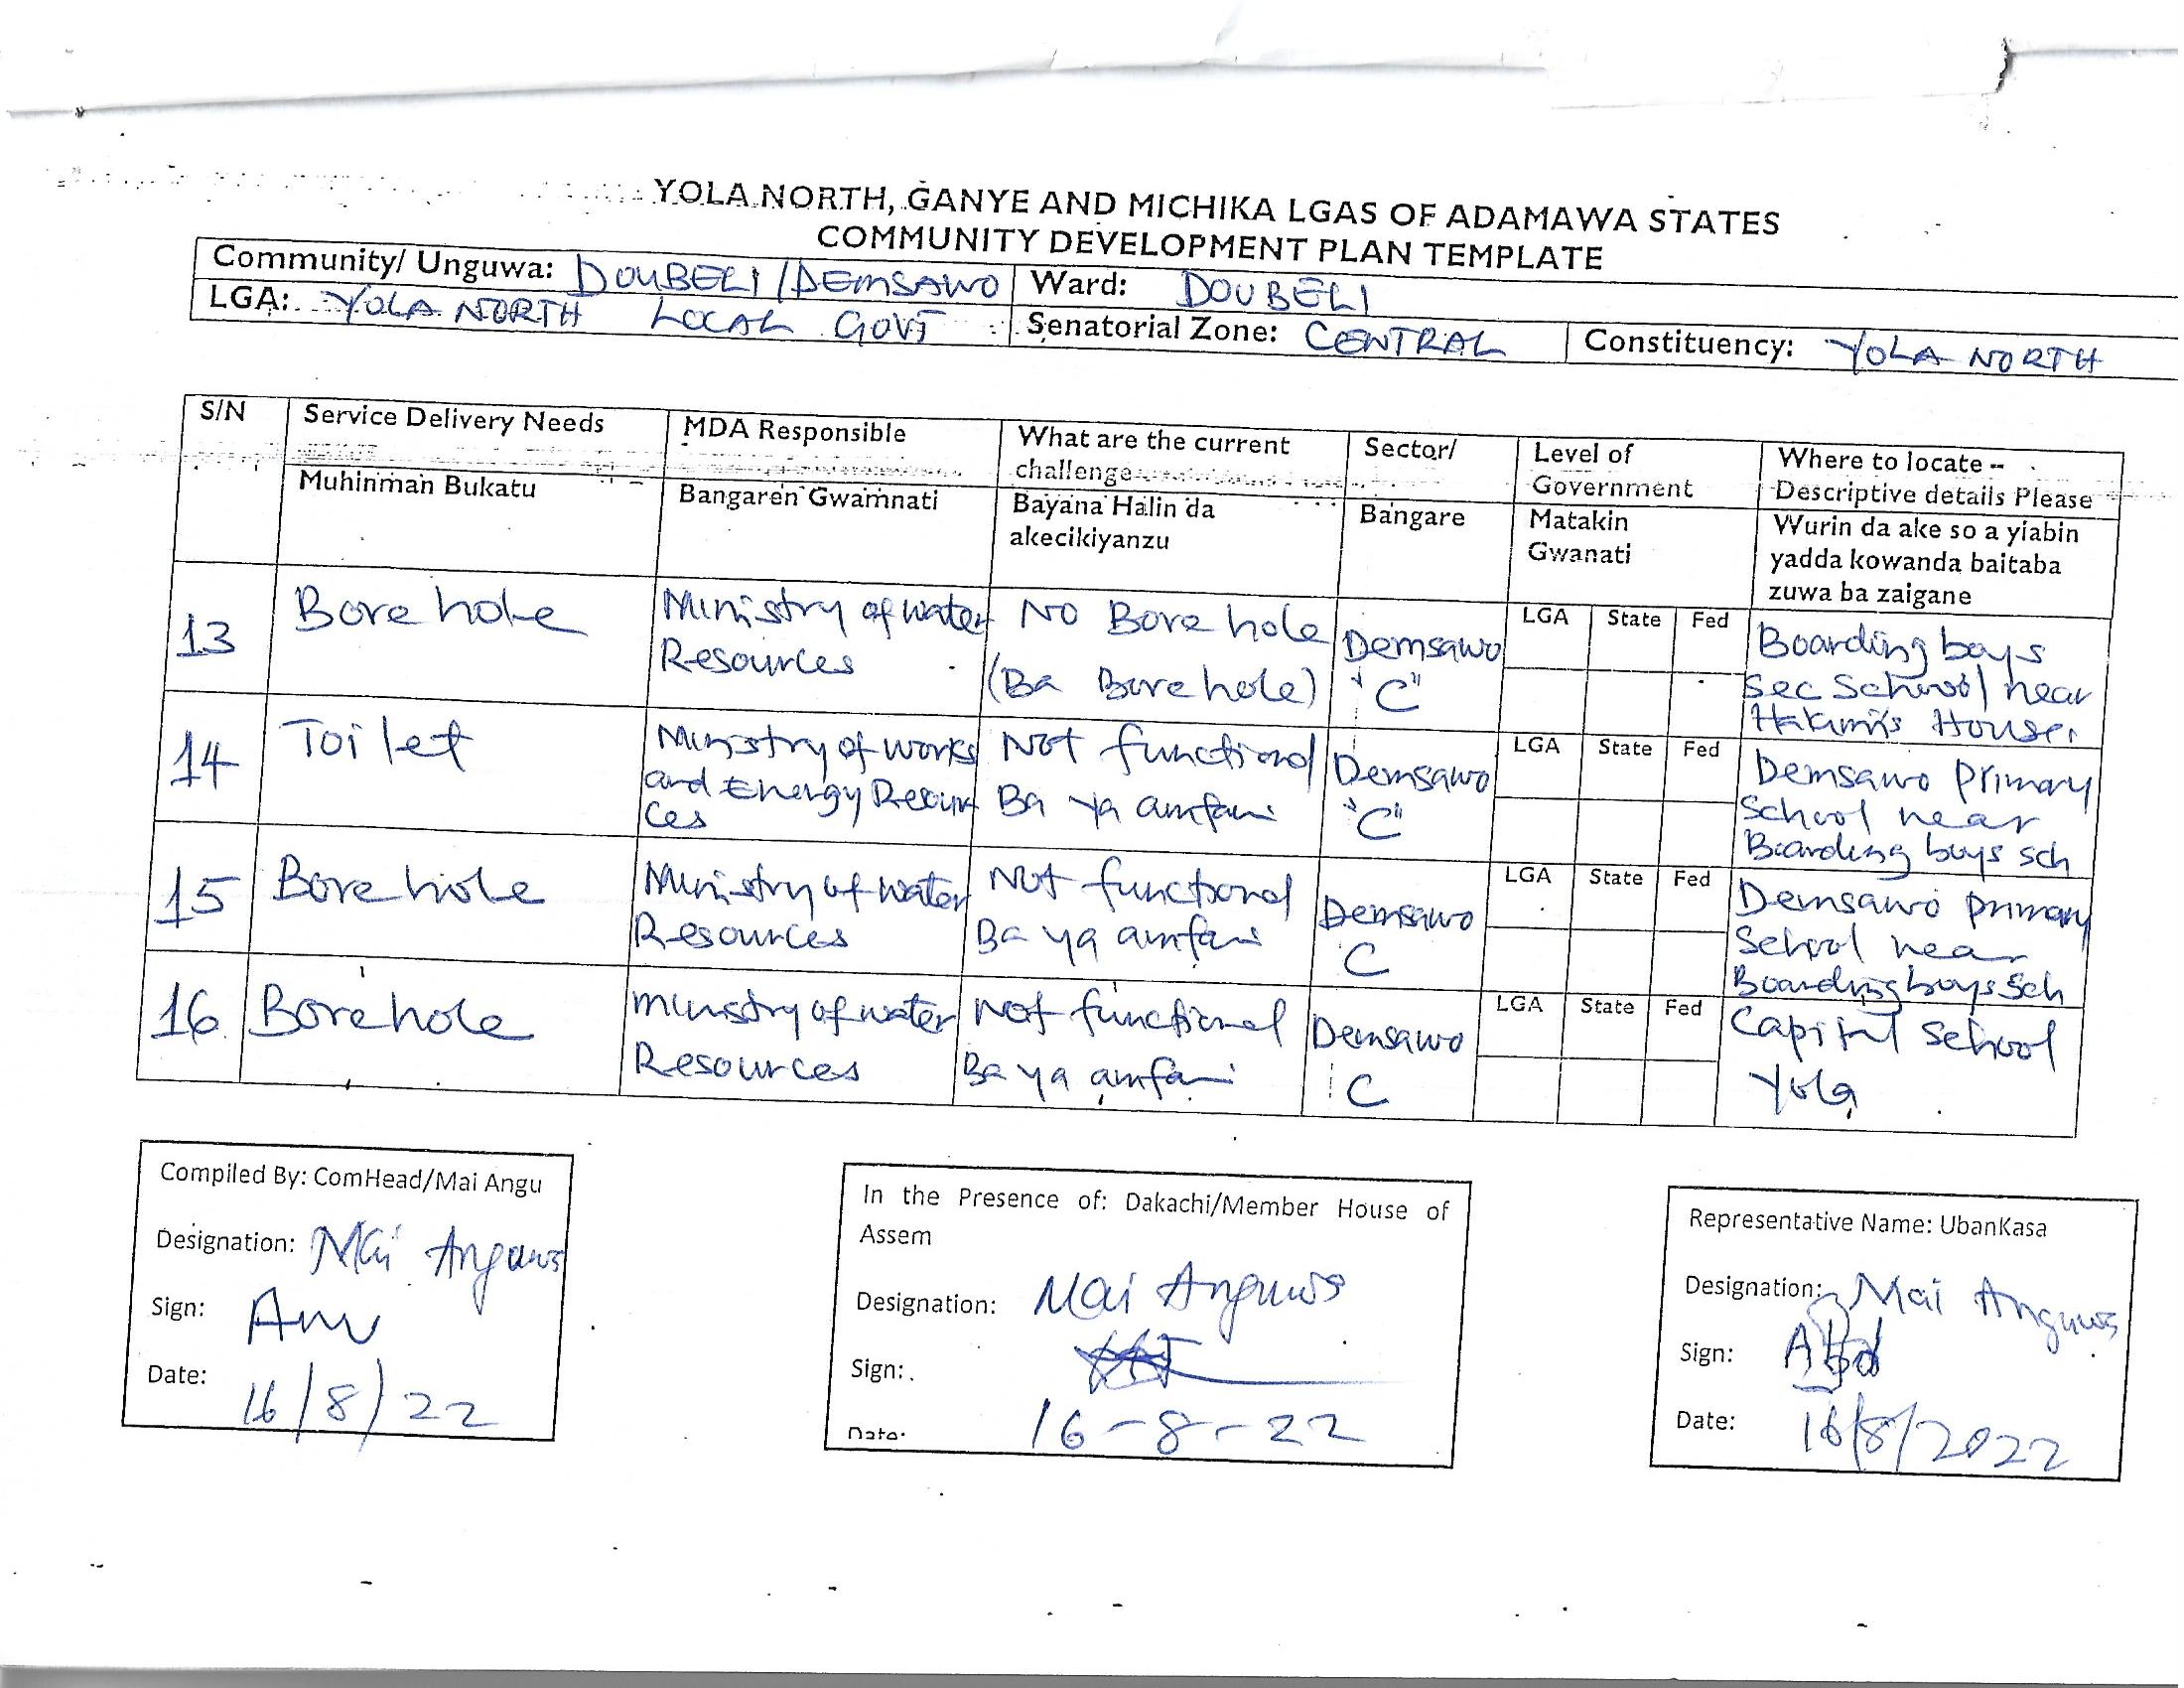 YOLA NORTH, GANYE AND MICHIKA LGAS OF ADAMAWA STATES
COMMUNITY DEVELOPMENT PLAN TEMPLATE
Community/ Unguwa: DOUBELI/DEMSAWO
Ward: DOUBELI
LGA: YOLA NORTH LOCAL GOVT
Senatorial Zone: CENTRAL
Constituency: YOLA NORTH
S/N
Service Delivery Needs
MDA Responsible
What are the current
challenge
Sector/
Level of
Government
Where to locate --
Descriptive details Please
Muhinman Bukatu
Bangaren Gwamnati
Bayana Halin da
akecikiyanzu
Bangare
Matakin
Gwanati
Wurin da ake so a yiabin
yadda kowanda baitaba
zuwa ba zaigane
13
Bore hole
Ministry of water
Resources
No Bore hole
(Ba Bore hole)
Demsawo
"C"
LGA State Fed
Boarding boys
Sec School near
Hakimi's House.
14
Toilet
Ministry of works
and Energy Resour
ces
Not functional
Ba ya amfani
Demsawo
"C"
LGA State Fed
Demsawo primary
School near
Boarding boys sch
15
Bore hole
Ministry of water
Resources
Not functional
Ba ya amfani
Demsawo
C
LGA State Fed
Demsawo primary
School near
Boarding boys Sch
16
Bore hole
ministry of water
Resources
Not functional
Ba ya amfani
Demsawo
C
LGA State Fed
Capital School
Yola
Compiled By: ComHead/Mai Angu
Designation: Mai Anguws
Sign:
Date: 16/8/22
In the Presence of: Dakachi/Member House of
Assem
Designation: Mai Anguws
Sign:
Date: 16-8-22
Representative Name: UbanKasa
Designation: Mai Anguws
Sign:
Date: 16/8/2022